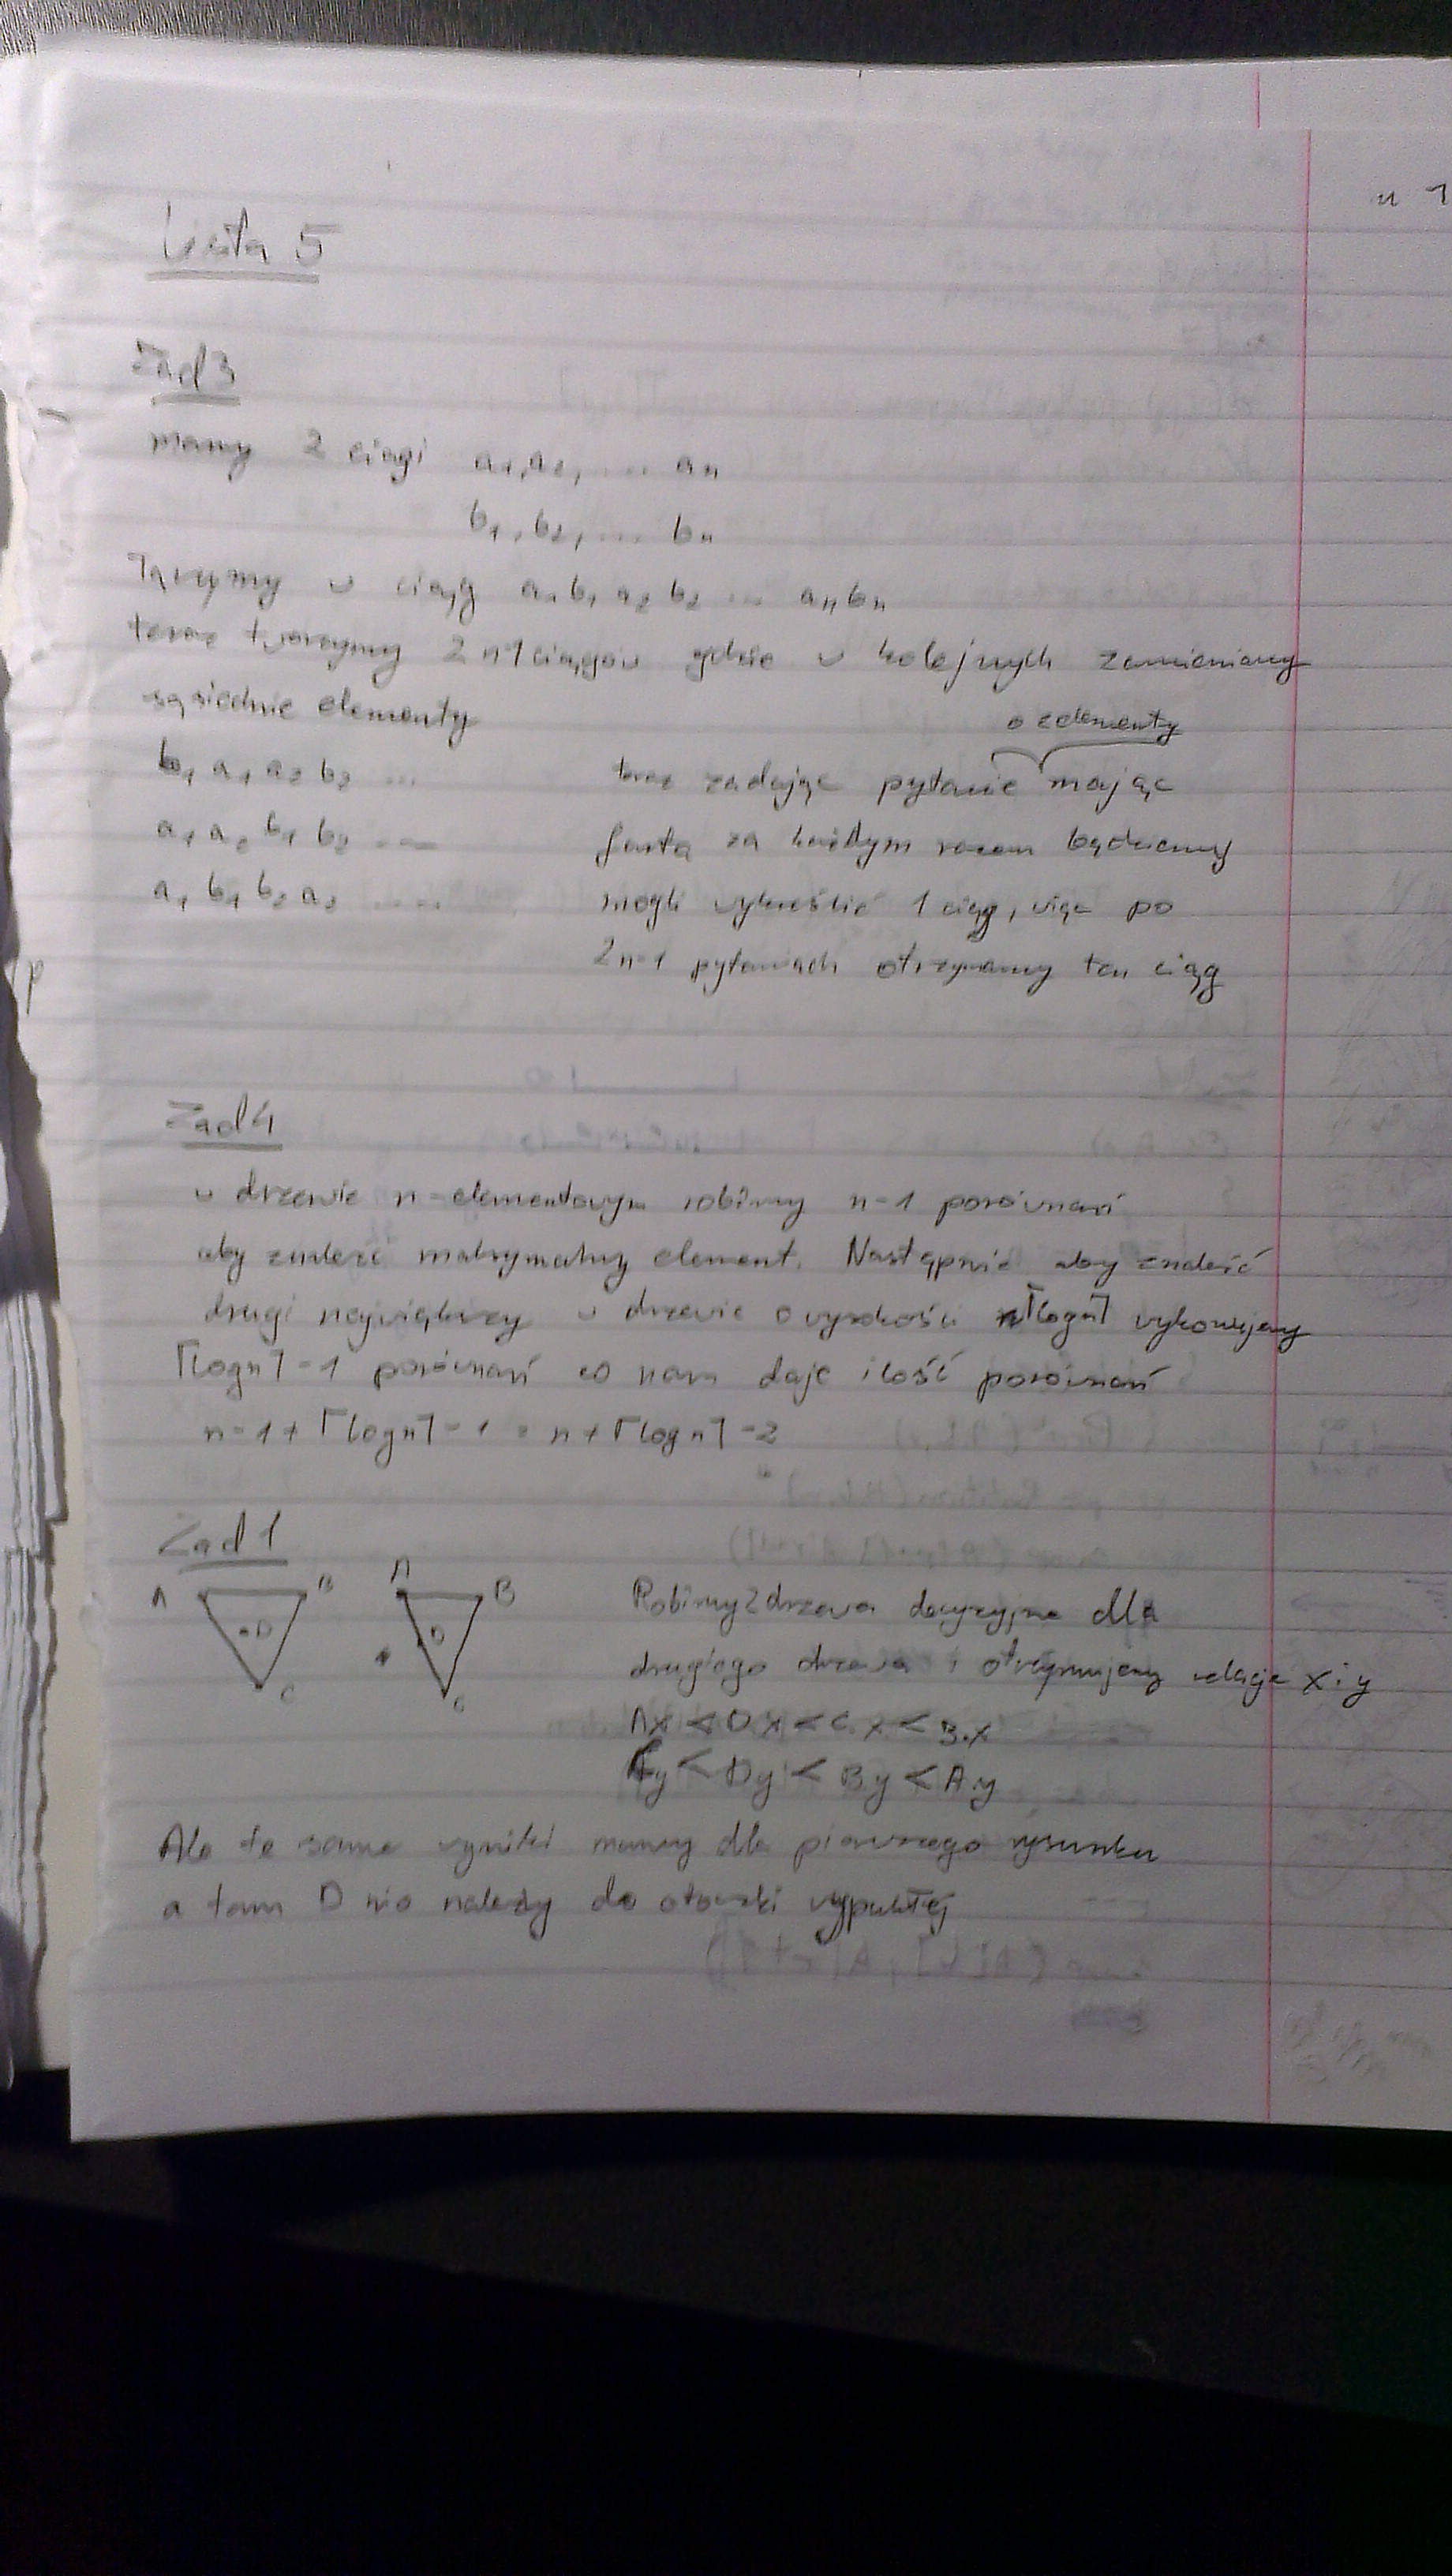 u 1
Lista 5
Zad 3
mamy 2 ciągi a1,a2, .... an
b1, b2, ... bn
Łączymy w ciąg a1 b1 a2 b2 ... an bn
teraz tworzymy 2n-1 ciągów gdzie w kolejnych zamieniamy
sąsiednie elementy
o 2 elementy
b1 a1 a2 b2 ...
teraz zadając pytanie mając
a1 a2 b1 b2 ...
farta za każdym razem będziemy
a1 b1 b2 a2 ....
mogli wykreślić 1 ciąg, więc po
2n-1 pytaniach otrzymamy ten ciąg
Zad 4
w drzewie n-elementowym robimy n-1 porównań
aby znaleźć maksymalny element. Następnie aby znaleźć
drugi największy w drzewie o wysokości ⌈logn⌉ wykonujemy
⌈logn⌉-1 porównań co nam daje ilość porównań
n-1+⌈logn⌉-1 = n+⌈logn⌉-2
Zad 1
A B A B
D D
C C
Robimy 2 drzewa decyzyjne dla
drugiego drzewa i otrzymujemy relacje x i y
A.x < D.x < C.x < B.x
C.y < D.y < B.y < A.y
Ale te same wyniki mamy dla pierwszego rysunku
a tam D nie należy do otoczki wypukłej